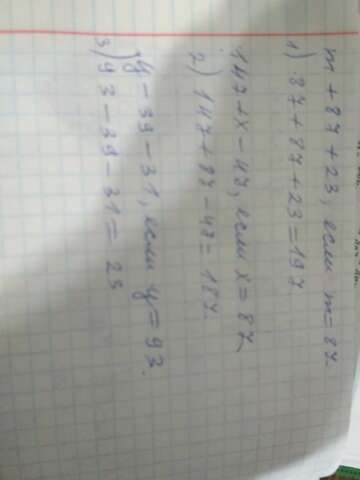 m + 87 + 23, если m = 87.
1) 87 + 87 + 23 = 197.
147 + x - 47, если x = 87.
2) 147 + 87 - 47 = 187.
y - 39 - 31, если y = 93.
3) 93 - 39 - 31 = 23